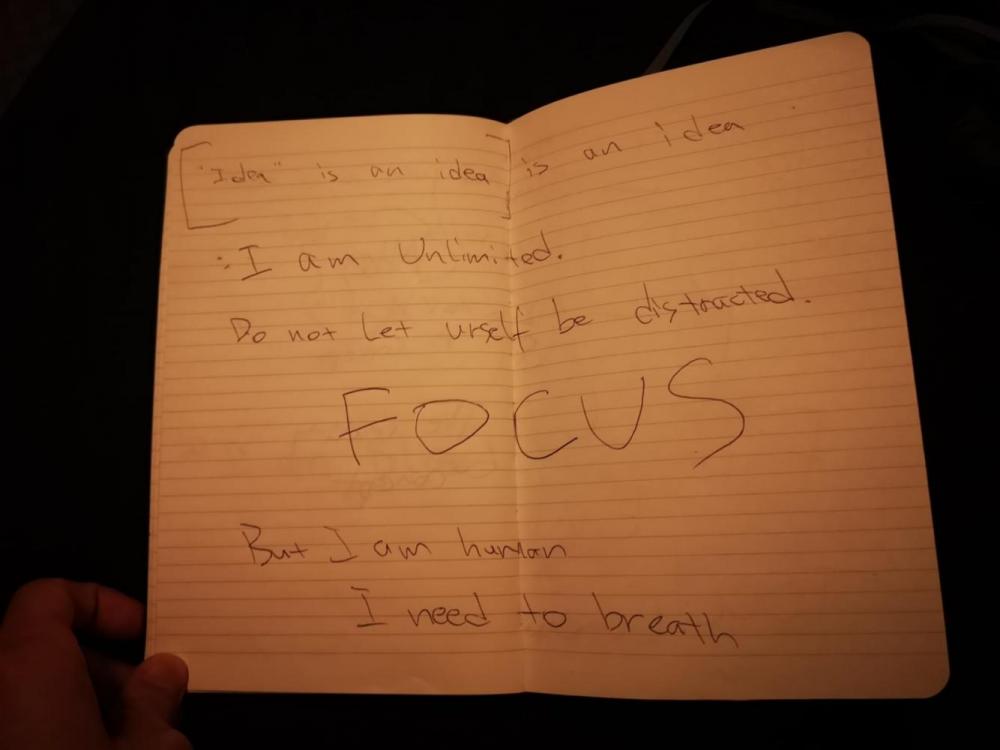 ["Idea" is an idea] is an idea
: I am Unlimited.
Do not Let urself be distracted.
FOCUS
But I am human
I need to breath